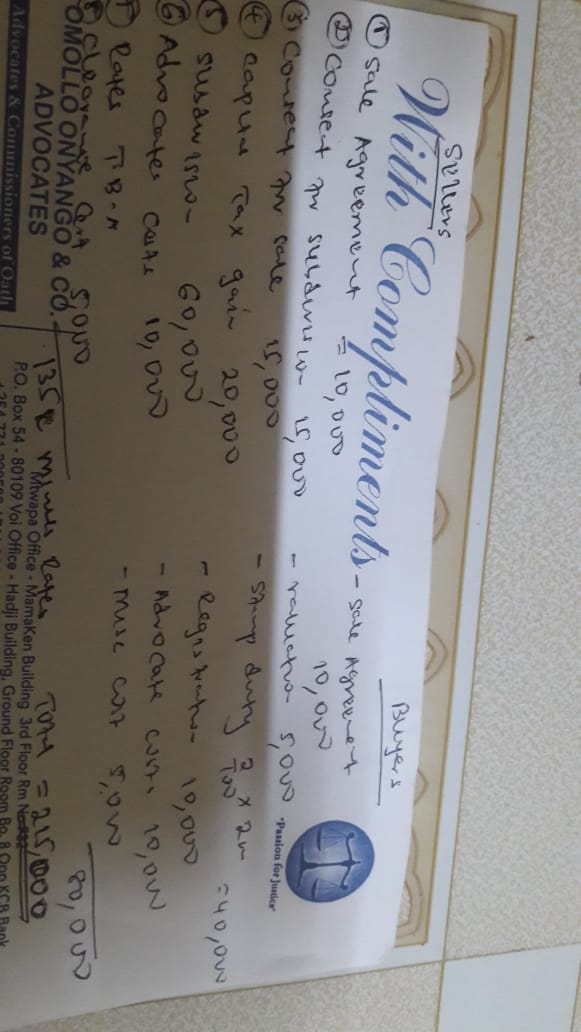 With Compliments
Sellers
① Sale Agreement = 10,000
② Consent for subdivision 15,000
③ Consent for sale 15,000
④ Capital Tax gain 20,000
⑤ Subdivision - 60,000
⑥ Advocates costs 10,000
⑦ Rates T.B.A
⑧ Clearance Cert 5000
135k Minus Rates
Buyers
- Sale Agreement
10,000
- Valuation 5,000
- Stamp duty 2/100 x 2m = 40,000
- Registration 10,000
- Advocate costs 10,000
- Misc cost 5,000
80,000
Total = 215,000
"Passion for Justice"
OMOLLO ONYANGO & CO.
ADVOCATES
Advocates & Commissioners of Oath
Mtwapa Office - MamaKen Building 3rd Floor Rm
P.O. Box 54 - 80109 Voi Office - Hadji Building, Ground Floor Room Bo. 8 Opp KCB Bank